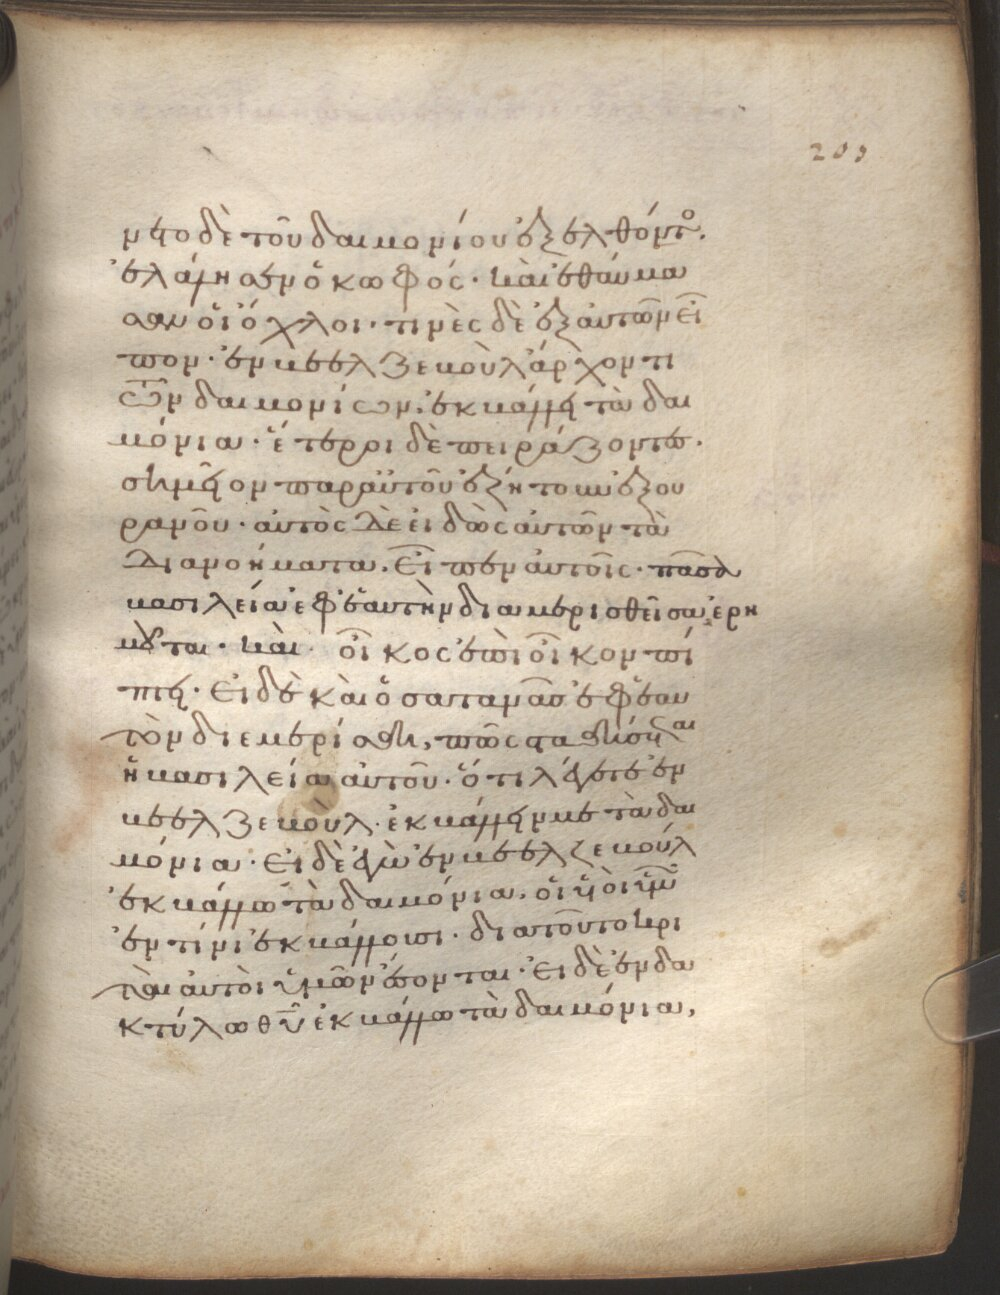 203
νετο δὲ τοῦ δαιμονίου ἐξελθόντο.
ἐλάλησεν ὁ κωφός· καὶ ἐθαύμα
σαν ὁι ὄχλοι· τινὲς δὲ ἐξ αυτῶν εἶ
πον· ἐν βεελζεβοὺλ ἄρχοντι
τῶν δαιμονίων. ἐκβάλλει τὰ δαι
μόνια· ἕτεροι δὲ πειράζοντες·
σημεῖον παρ' αὐτοῦ ἐζήτουν ἐξ ου
ρανοῦ· αυτὸς δὲ ειδὼς αυτῶν τὰ
διανοήματα. εἶπεν αυτοῖς· πᾶσα
βασιλεία ἐφ' ἑαυτὴν διαμερισθεῖσα ἐρη
μοῦται· καὶ οἶκος ἐπὶ οἶκον πί
πτει· Εἰ δὲ καὶ ὁ σατανᾶς ἐφ' ἑαυ
τὸν διεμερίσθη, πῶς σταθήσεται
ἡ βασιλεία αυτοῦ· ὅτι λέγετε ἐν
βεελζεβουλ· ἐκβάλλειν με τὰ δαι
μόνια· Εἰ δὲ ἐγὼ ἐν βεελζεβούλ
ἐκβάλλω τὰ δαιμόνια. ὁι ϋἱοὶ ϋμῶν
ἐν τίνι ἐκβάλλουσι· διατοῦτο κρι
ταὶ αυτὸι ὑμῶν ἔσονται· Εἰ δὲ ἐν δα
κτύλω θῦ ἐκβάλλω τὰ δαιμόνια,